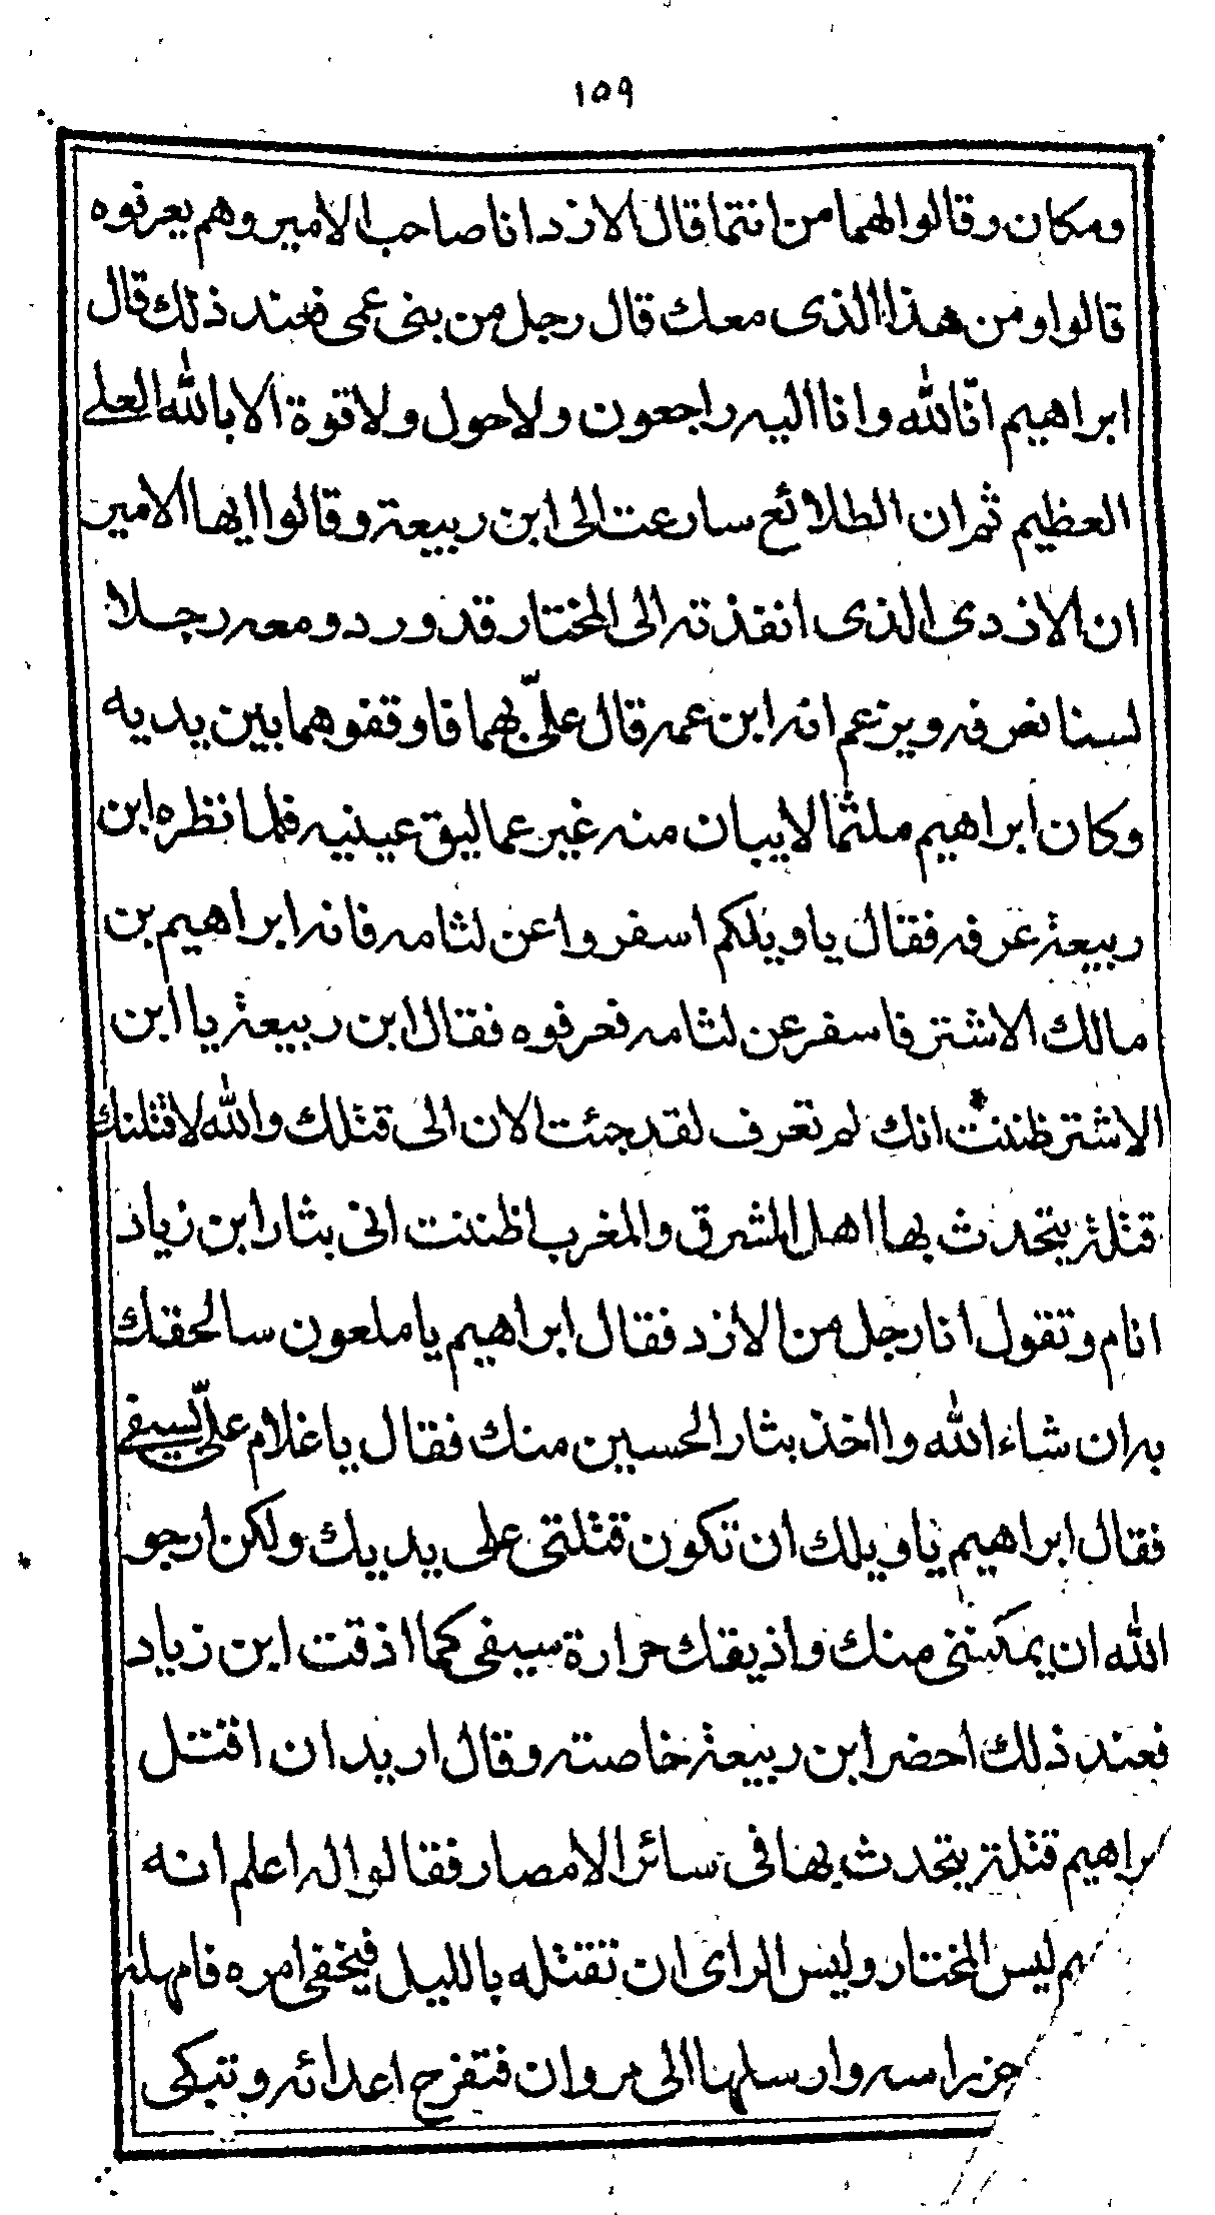 ١٥٩
ومكان وقالوا لهما من انتما قال الازد انا صاحب الامير وهم يعرفوه
قالوا ومن هذا الذى معك قال رجل من بنى عمى فعند ذلك قال
ابراهيم انّا لله وانا اليه راجعون ولا حول ولا قوة الا بالله العلى
العظيم ثم ان الطلائع سارعت الى ابن ربيعة وقالوا ايها الامير
ان الازدى الذى انفذته الى المختار قد ورد ومعه رجلا
لسنا نعرفه ويزعم انه ابن عمه قال علىّ بهما فاوقفوهما بين يديه
وكان ابراهيم ملثما لايبان منه غير عماليق عينيه فلما نظره ابن
ربيعة عرفه فقال ياويلكم اسفروا عن لثامه فانه ابراهيم بن
مالك الاشتر فاسفر عن لثامه فعرفوه فقال ابن ربيعة يا ابن
الاشتر ظننت انك لم تعرف لقد جئت الان الى قتلك والله لاقتلنك
قتلة يتحدث بها اهل المشرق والمغرب اظننت انى بثار ابن زياد
انام وتقول انا رجل من الازد فقال ابراهيم يا ملعون سالحقك
به ان شاء الله وااخذ بثار الحسين منك فقال يا غلام علىّ بسيفى
فقال ابراهيم ياويلك ان تكون قتلتى على يديك ولكن ارجو
الله ان يمكننى منك واذيقك حرارة سيفى كما اذقت ابن زياد
فعند ذلك احضر ابن ربيعة خاصته وقال اريد ان اقتل
براهيم قتلة يتحدث بها فى سائر الامصار فقالوا له اعلم انه
ليس المختار وليس الراى ان تقتله بالليل فيخفى امره فامهله
حز راسه وارسلها الى مروان فتفرح اعدائه وتبكى